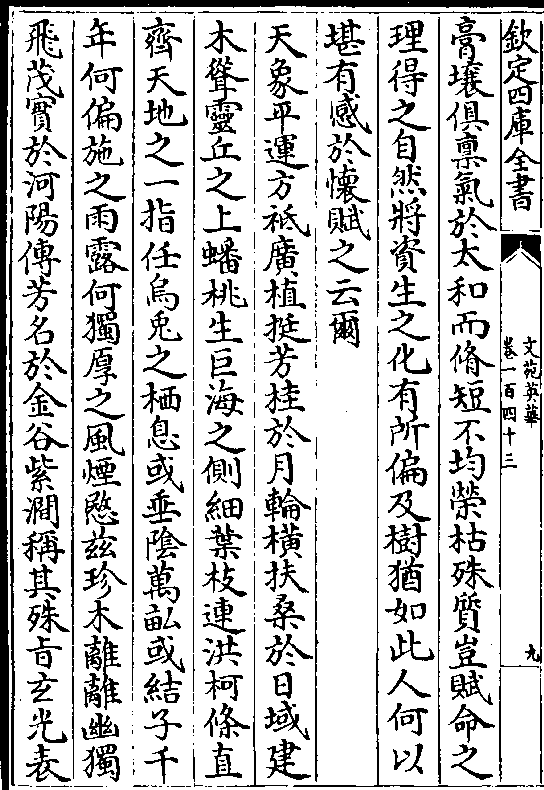 欽定四庫全書
文苑英華
卷一百四十三
九
膏壤俱禀氣於太和而脩短不均榮枯殊質豈賦命之
理得之自然將資生之化有所偏及樹猶如此人何以
堪有感於懷賦之云爾
天象平運方祗廣植挺芳桂於月輪橫扶桑於日域建
木聳靈丘之上蟠桃生巨海之側細葉枝連洪柯條直
齊天地之一指任烏兎之栖息或垂陰萬畝或結子千
年何偏施之雨露何獨厚之風煙愍兹珍木離離幽獨
飛茂實於河陽傳芳名於金谷紫澗稱其殊旨玄光表